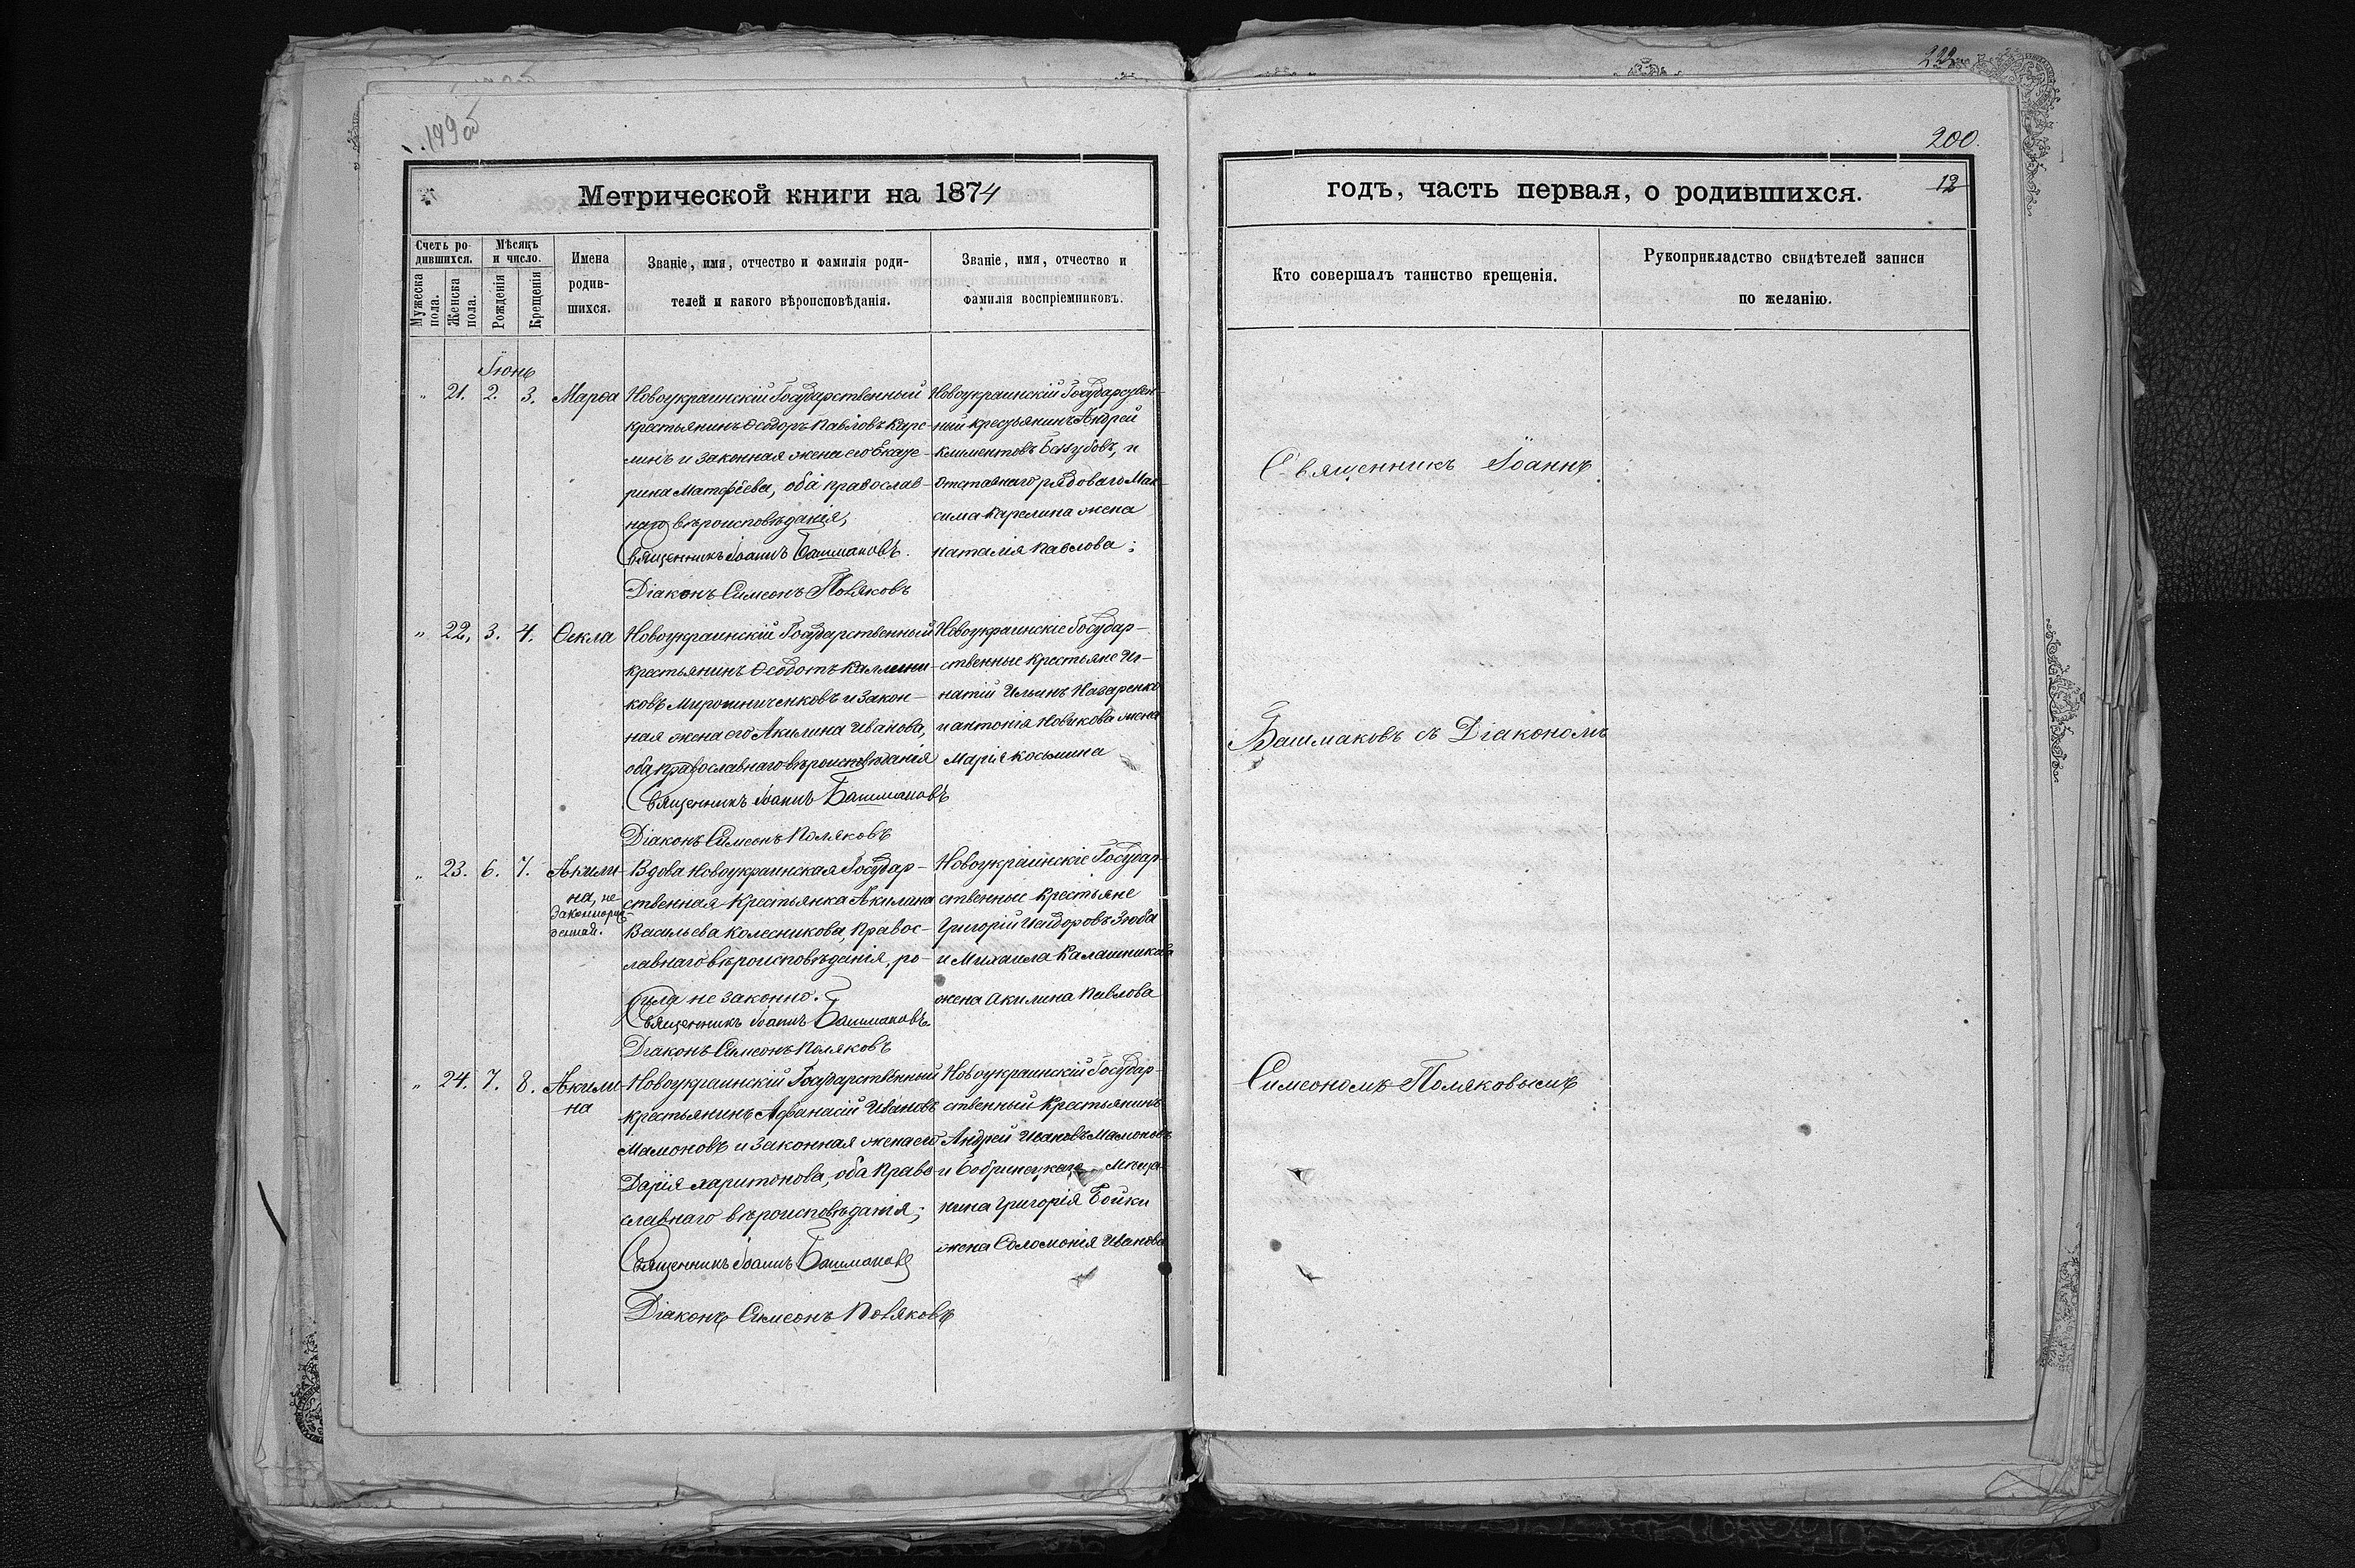 199об
222
200.
Метрической книги на 1874
годъ, часть первая, о родившихся.
12
Счетъ ро-
дившихся.
Мѣсяцъ
и число.
Мужеска
пола.
Женска
пола.
Рожденія
Крещенія
Имена
родив-
шихся.
Званіе, имя, отчество и фамилія роди-
телей и какого вѣроисповѣданія.
Званіе, имя, отчество и
фамилія воспріемниковъ.
Кто совершалъ таинство крещенія.
Рукоприкладство свидѣтелей записи
по желанію.
Іюнь
" 21. 2. 3. Марѳа
Новоукраинскій Государственный
крестьянинъ Ѳеодоръ Павловъ Каре-
линъ и законная жена его Екате-
рина Матфѣева, оба православ-
наго вѣроисповѣданія,
Священникъ Іоаннъ Башмаковъ.
Діаконъ Симеонъ Поляковъ
Новоукраинскій Государствен-
ный крестьянинъ Андрей
Климентовъ и
Отставнаго рядоваго Мак-
сима Карелина жена
Наталія Павлова;
" 22, 3. 4. Ѳекла
Новоукраинскій Государственный
крестьянинъ Ѳеодотъ Каллини-
ковъ Мирошниченковъ и закон-
ная жена его Акилина Иванова,
оба православнаго вѣроисповѣданія
Священникъ Іоаннъ Башмаковъ
Діаконъ Симеонъ Поляковъ
Новоукраинскіе Государ-
ственные крестьяне Иг-
натій Ильинъ Назаренко
и Антонія Новикова жена
Марія Косьмина
" 23. 6. 7. Акили-
на, не
законнорож-
денная.
Вдова Новоукраинская Государ-
ственная Крестьянка Акилина
Васильева Колесникова, Правос-
лавнаго вѣроисповѣданія, ро-
дила не законно.
Священникъ Іоаннъ Башмаковъ.
Діаконъ Симеонъ Поляковъ
Новоукраинскіе Государ-
ственные Крестьяне
Григорій Исидоровъ Зюба
и Михаила Калашникова
жена Акилина Павлова
" 24. 7. 8. Акили-
на
Новоукраинскій Государственный
крестьянинъ Афанасій Ивановъ
Мамоновъ и законная жена его
Дарія Харитонова, оба Право-
славнаго вѣроисповѣданія;
Священникъ Іоаннъ Башмаковъ
Діаконъ Симеонъ Поляковъ
Новоукраинскій Государ-
ственный Крестьянинъ
Андрей Ивановъ Мамоновъ
и Бобринецкаго Мѣща-
нина Григорія Бойки
жена Соломонія Иванова
Священникъ Іоаннъ
Башмаковъ съ Діакономъ
Симеономъ Поляковымъ